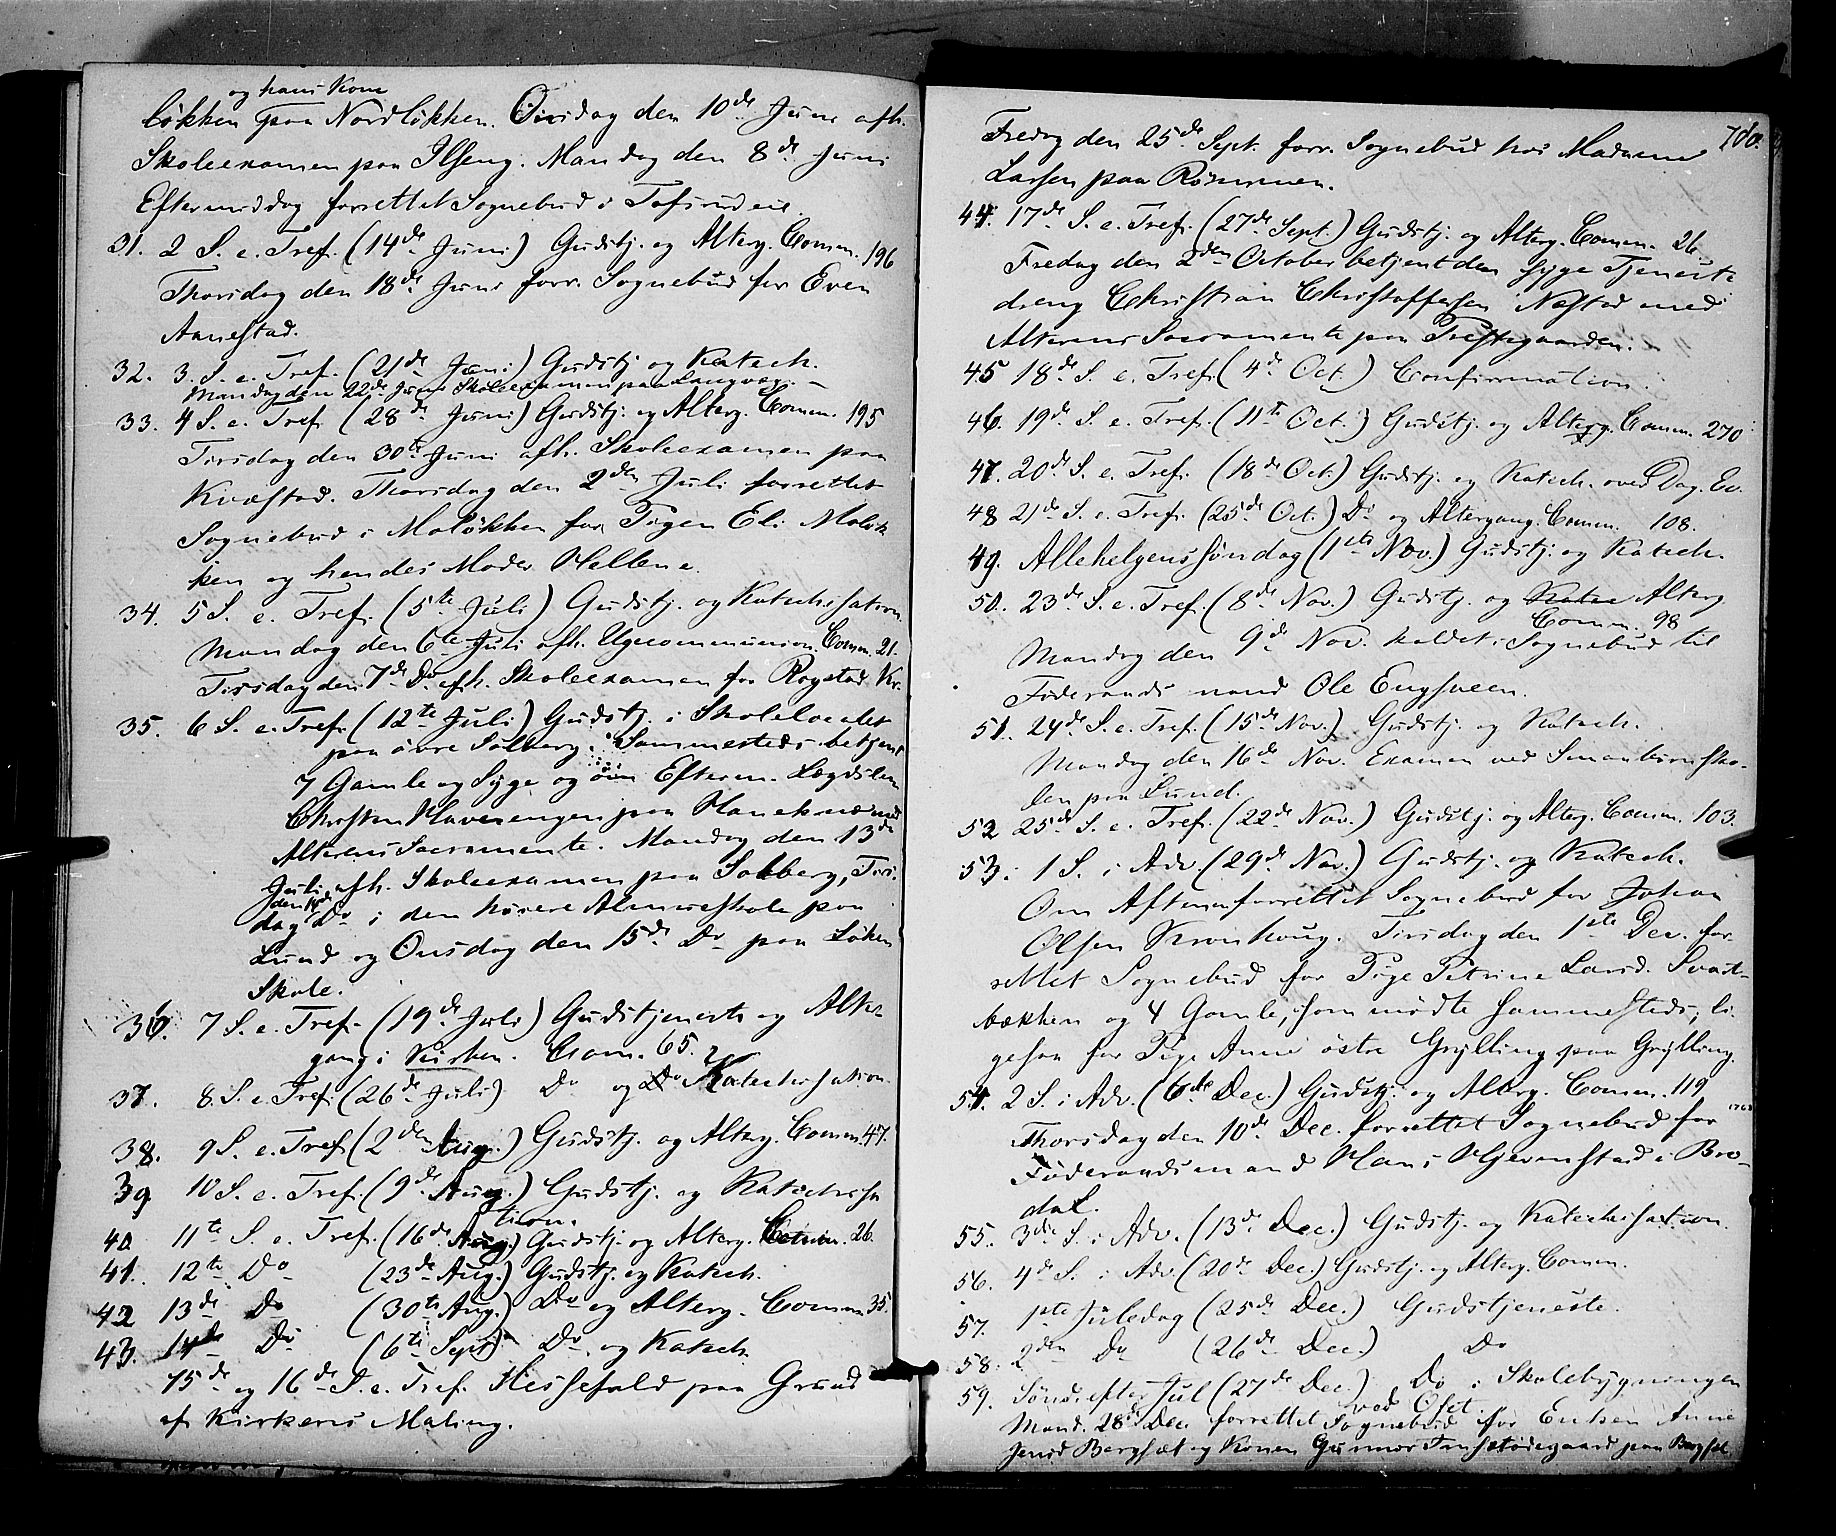 og hans Kone
løkken paa Nordløkken. Onsdag den 10de Juni afh.
Skoleexamen paa Ilseng. Mandag den 8de Juni
Eftermiddag forrettet Sognebud i Tofsrudeie.
31. 2 S. e. Tref. (14de Juni) Gudstj. og Alterg. Comm. 196
Thorsdag den 18de Juni forr. Sognebud for Even
Aanestad.
32. 3. S. e. Tref. (21de Juni) Gudstj og Katech.
Mandag den 22de Juni Skoleexamen paa
33. 4 S. e. Tref. (28de Juni) Gudstj. og Alterg. Comm. 195
Tirsdag den 30te Juni afh. Skoleexamen paa
Kvæstad. Thorsdag den 2den Juli forrettet
Sognebud i Moløkken for Pigen Eli Moløk
ken og hendes Moder Hellene.
34. 5 S. e. Tref. (5te Juli) Gudstj. og Katechisation.
Mandag den 6te Juli afh. Ugecommunion. Comm. 21.
Tirsdag den 7de Do afh. Skoleexamen for Rogstad Kr.
35. 6 S. e. Tref. (12te Juli) Gudstj. i Skolelocalet
paa øvre Solberg. Sammesteds betjent
7 Gamle og Syge og om Efterm. Lægdslem
Christen Haverengen paa Hanekne med
Alterens Sacramente. Mandag den 13de
Juli afh. Skoleexamen paa Solberg, Tirs-
den 14de
dag Do i den høiere Almueskole paa
Lund og Onsdag den 15de Do paa Løken
Skole.
36. 7 S. e. Tref. (19de Juli) Gudstjeneste og Alter-
gang i Kirken. Com. 65.
37. 8. S. e. Tref. (26de Juli) Do og Katechisation.
38. 9 S. e. Tref. (2den Aug.) Gudstj. og Alterg. Comm. 47.
39 10 S. e. Tref. (9de Aug.) Gudstj. og Katechisa
tion.
40 11te S. e. Tref. (16de Aug.) Gudstj. og Alterg. Comm. 26.
41. 12te Do (23de Aug.) Gudstj. og Katech.
42 13de Do (30te Aug.) Do og Alterg. Comm. 35.
43. 14de Do (6te Sept) Do og Katech.
15de og 16de S. e. Tref. Messefald paa Grund
af Kirkens Maling.
780.
Fredag den 25de Sept. forr. Sognebud hos Madame
Larsen paa Rømmen.
44. 17de S. e. Tref. (27de Sept.) Gudstj. og Alterg. Comm. 26
Fredag den 2den October betjent den syge Tjeneste
dreng Christian Christoffersen Næstad med
Alterens Sacramente paa Prestegaarden.
45 18de S. e. Tref. (4de Oct.) Confirmation.
46. 19de S. e. Tref. (11te Oct.) Gudstj. og Alterg. Comm. 270
47. 20de S. e. Tref. (18de Oct.) Gudstj. og Katech. over Dag. Ev.
48 21de S. e. Tref. (25de Oct.) Do og Altergang. Comm. 108.
49. Allehelgenssøndag (1ste Nov.) Gudstj. og Katech.
50. 23de S. e. Tref. (8de Nov.) Gudstj. og Katec Alterg
Comm. 98
Mandag den 9de Nov. holdet Sognebud til
Føderaadsmand Ole Engsveen.
51. 24de S. e. Tref. (15de Nov.) Gudstj. og Katech.
Mandag den 16de Nov. Examen ved Smaabørnsko-
len paa Lund.
52 25de S. e. Tref. (22de Nov.) Gudstj. og Alterg. Comm. 103.
53. 1 S. i Adv. (29de Nov.) Gudstj. og Katech.
Om Aftenen forrettet Sognebud for Johan
Olsen Kronhoug. Tirsdag den 1ste Dec. for-
rettet Sognebud for Pige Petrine Larsd. Svart-
bækken og 4 Gamle, som mødte sammesteds, li-
gesaa for Pige Anne østre Grylling paa Grylling.
54. 2 S. i Adv. (6te Dec.) Gudstj. og Alterg. Comm. 119
Thorsdag den 10de Dec. forrettet Sognebud for
Føderaadsmand Hans Hjermstad i Bro-
dal.
55. 3die S. i Adv. (13de Dec.) Gudstj. og Katechisation.
56. 4de S. i Adv. (20de Dec.) Gudstj. og Alterg. Comm.
57. 1ste Juledag (25de Dec.) Gudstjeneste.
58. 2den Do (26de Dec.) Do
59. Sønd. efter Jul (27de Dec.) Do i Skolebygningen
ved Oset
Mand. 28de Dec. forrettet Sognebud for Enken Anne
Jensd Bergsæt og Konen Gunnor paa Bergsæt